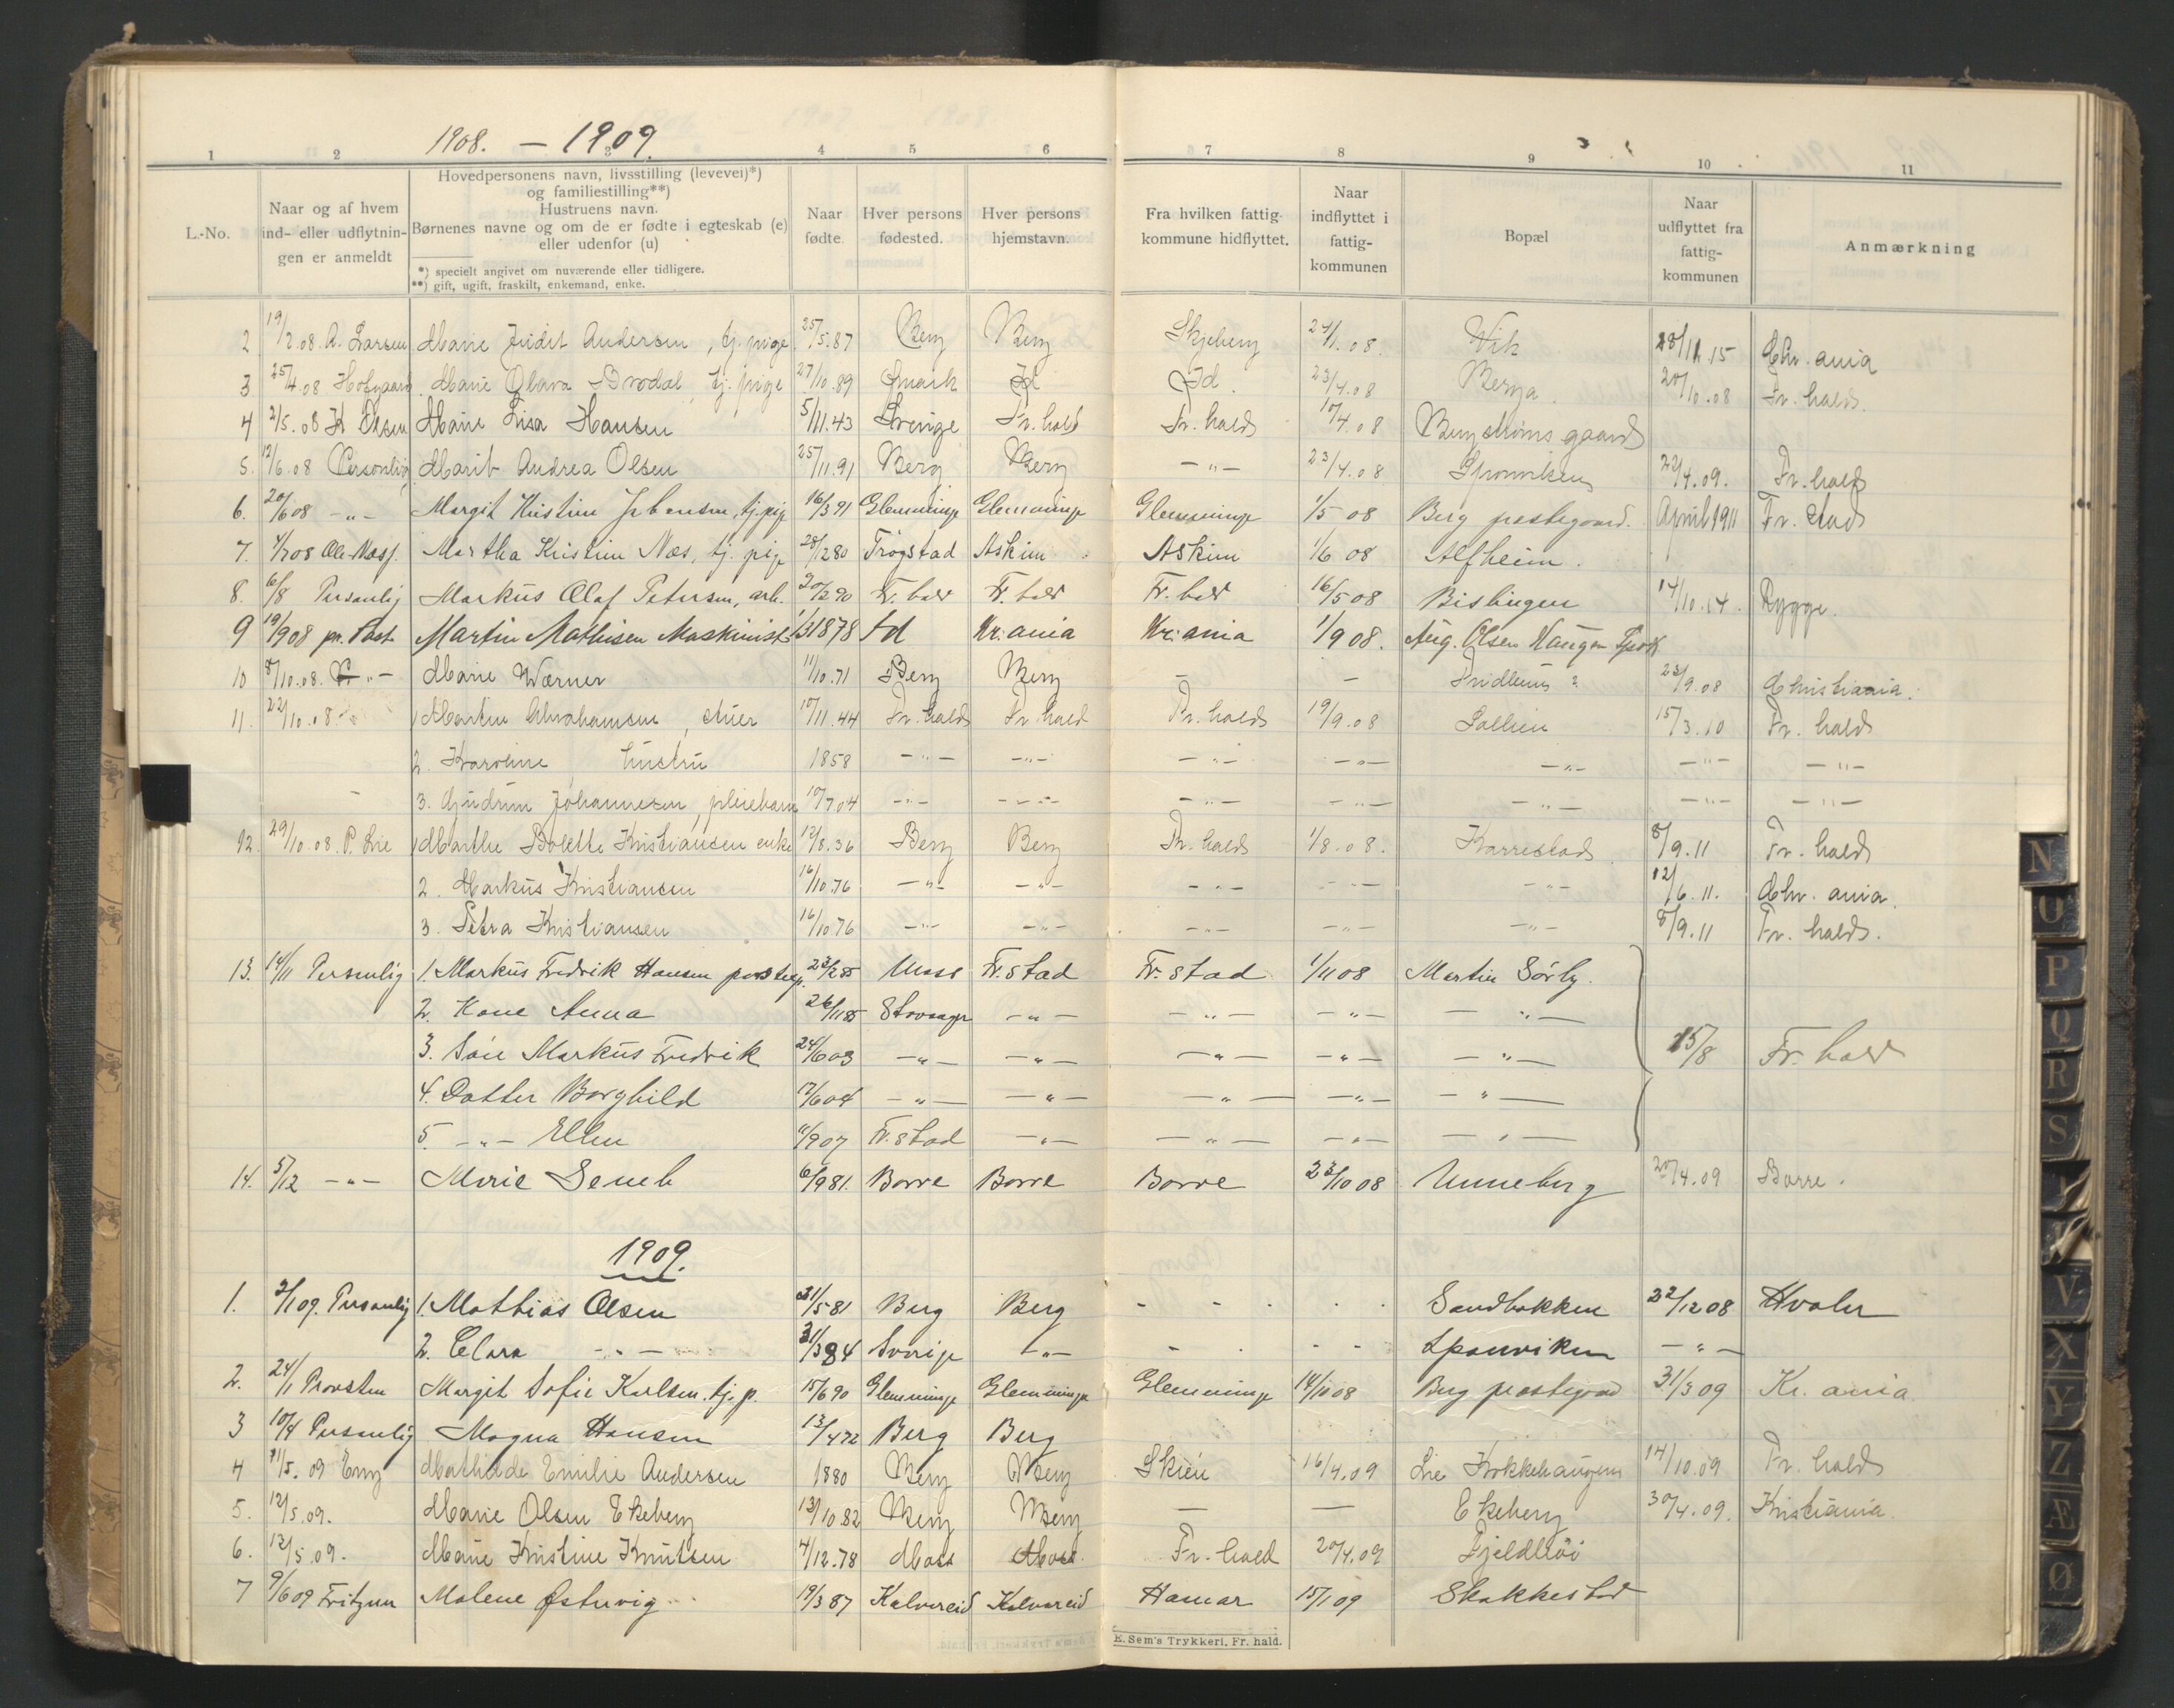 1908. — 1909.
1 2 3 4 5 6 7 8 9 10 11
L.-No. Naar og af hvem ind- eller udflytnin-gen er anmeldt Hovedpersonens navn, livsstilling (levevei)*) og familiestilling**) Hustruens navn. Børnenes navne og om de er fødte i egteskab (e) eller udenfor (u) Naar fødte. Hver persons fødested. Hver persons hjemstavn. Fra hvilken fattig-kommune hidflyttet. Naar indflyttet i fattig-kommunen Bopæl Naar udflyttet fra fattig-kommunen Anmærkning
*) specielt angivet om nuværende eller tidligere.
**) gift, ugift, fraskilt, enkemand, enke.
2 19/2.08 A. Larsen Marie Judit Andersen, tj. pige 25/5.87 Berg Berg Skjeberg 24/1.08. Vik 28/11.15 Chr. ania
3 25/4.08 Hofgaard Marie Olava Brodal, tj. pige 27/10.89 Id Id. 23/4.08 Berga. 20/10.08 Fr. hald.
4 2/5.08 K Olsen Marie Lisa Hansen 5/11.43 Sverige Fr. hald Fr. hald 10/4.08 Bergstrøms gaard
5. 12/6.08 Personlig Marit Andrea Olsen 25/11.91 Berg Berg — " — 23/4.08 Sponviken 22/4.09. Fr. hald
6. 20/6 08 — " — Margit Kristine Johansen, tj. pig 16/3 91 Glemminge Glemminge Glemminge 1/5 08 Berg prestegaard. April 1911 Fr. stad
7. 4/7 08 Ole Næss. Martha Kristine Næs, tj. pige 28/2 80 Trøgstad Askim Askim 1/6 08 Alfheim.
8. 6/8 Personlig Markus Olaf Petersen, arb. 20/2 90 Fr. hald Fr. hald Fr. hald 16/5 08 Bislingen 14/10.14. Rygge.
9 19/9 08 pr. Post Martin Mathisen Maskinist 1/3 1878 Id Kr. ania Kr. ania 1/9 08. Aug. Olsen Haugen
10 8/10.08. — " — Marie Wærner 11/10.71 Berg Berg — — Fridheim ? 23/9.08 Christiania.
11. 22/10.08. 1 Martin Abrahamsen, 10/11.44 Fr. hald Fr. hald Fr. hald 19/9.08 Solheim 15/3.10 Fr. hald
2. Karoline, hustru 1858 — " — — " — — " — — " — — " — — " — — " —
3. Gudrun Johannesen, pleiebarn 10/7.04 — " — — " — — " — — " — — " — — " — — " —
12. 29/10.08. P. Lie 1 Marthe Bolette Kristiansen enke 12/8.36 Berg Berg Fr. hald 1/8.08. Karrestad 8/9.11 Fr. hald
2. Markus Kristiansen 16/10.76 — " — — " — — " — — " — — " — 12/6.11. Chr. ania.
3. Petra Kristiansen 16/10.76 — " — — " — — " — — " — — " — 8/9.11 Fr. hald.
13. 14/11 Personlig 1. Markus Fredrik Hansen postexp. 23/2 85 Moss Fr. stad Fr. stad 1/11 08 Martin Sørby.
2. Kone Anna 26/11 85 Stavanger — " — — " — — " — — " —
3. Søn Markus Fredrik 24/6 03 — " — — " — — " — — " — — " — 15/8 Fr. hald
4. Datter Borghild 17/6 04 — " — — " — — " — — " — — " —
5 — " — Ellen 11/9 07 Fr. stad — " — — " — — " — — " —
14. 5/12 — " — Marie 6/9 81. Borre Borre Borre 23/10 08 Unneberg 20/4.09 Borre.
1909.
1. 2/1 09. Personlig 1. Mathias Olsen 21/5 81 Berg Berg - - - - Sandbakken 22/12 08 Hvaler
2. Clara — " — 31/3 84 Sverige — " — - - - - Sponviken — " —
2. 24/1 Provsten Margit Sofie Karlsen. tj. p. 15/6 90 Glemminge Glemminge Glemminge 14/10 08 Berg prestegaard 31/3 09 Kr. ania
3 10/4 Personlig Magna Hansen 13/4 72 Berg Berg
4 11/5. 09 Mathilde Emilie Andersen 1880 Berg Berg Skien 16/4.09 Lie Krokkehaugen 14/10.09 Fr. hald
5. 12/5.09. Marie Olsen Ekeberg 13/10.82 Berg Berg — — Ekeberg 30/4.09. Kristiania.
6. 12/5.09. Marie Kristine Knutsen 4/12.78 Moss Moss. Fr. hald 20/4.09 Fjeldhøi
7 9/6 09 Fritzner Malene Østervig 19/3 87 Kalvereid Kalvereid Hamar 15/1 09 Skakkestad
E. Sem's Trykkeri, Fr. hald.
N
O
P
Q
R
S
V
X
Y
Z
Æ
Ø